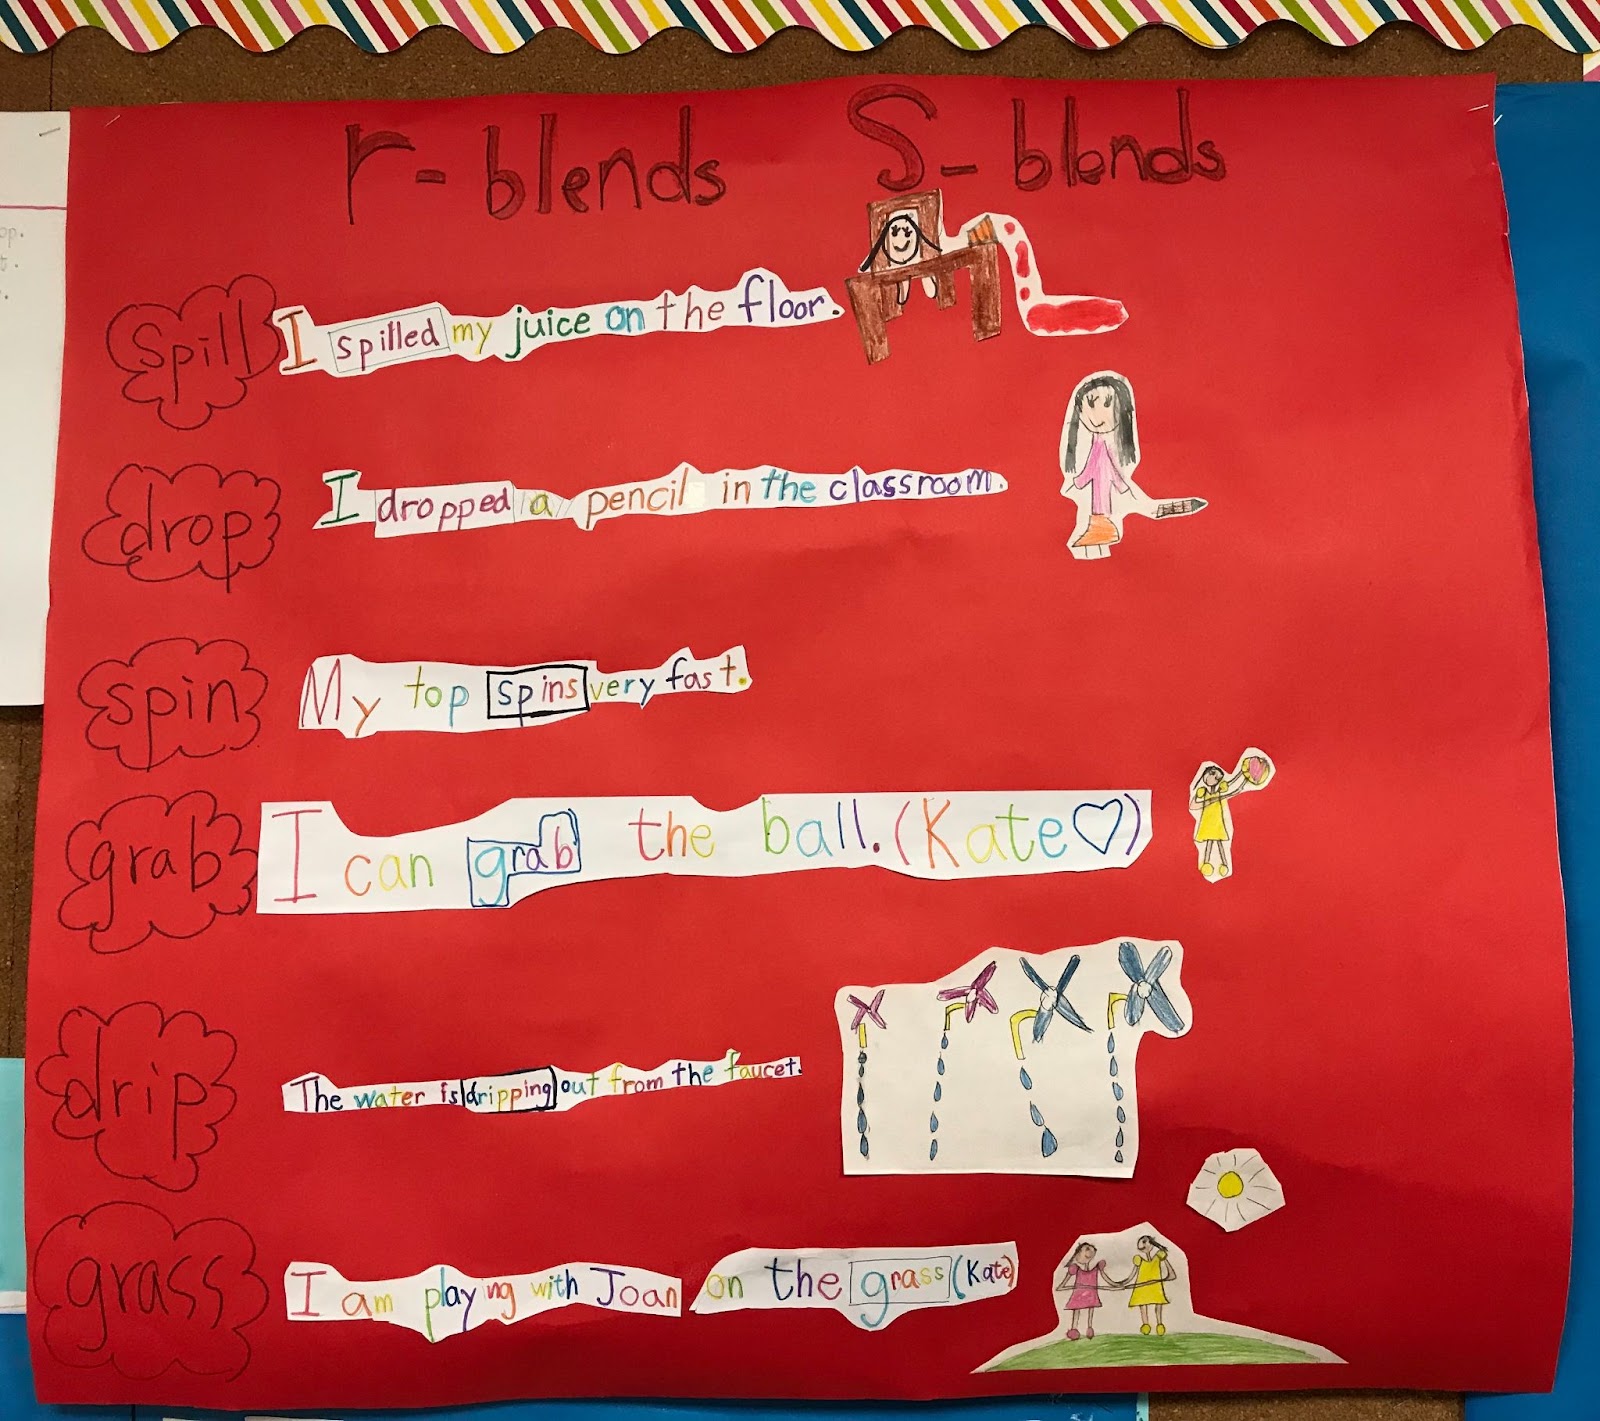 r-blends S-blends
spill I spilled my juice on the floor.
drop I dropped a pencil in the classroom.
spin My top spins very fast.
grab I can grab the ball. (Kate♡)
drip The water is dripping out from the faucet.
grass I am playing with Joan on the grass (Kate)